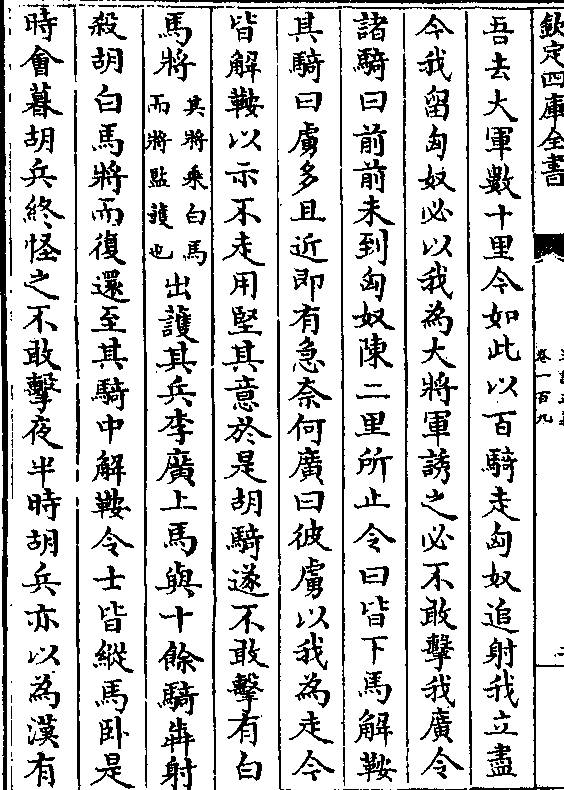 欽定四庫全書
卷一百九
吾去大軍數十里今如此以百騎走匈奴追射我立盡
今我留匈奴必以我為大將軍誘之必不敢擊我廣令
諸騎曰前前未到匈奴陳二里所止令曰皆下馬解鞍
其騎曰虜多且近即有急奈何廣曰彼虜以我為走今
皆解鞍以示不走用堅其意於是胡騎遂不敢擊有白
馬將其將乗白馬而將監護也出護其兵李廣上馬與十餘騎犇射
殺胡白馬將而復還至其騎中解鞍令士皆縱馬卧是
時會暮胡兵終怪之不敢擊夜半時胡兵亦以為漢有